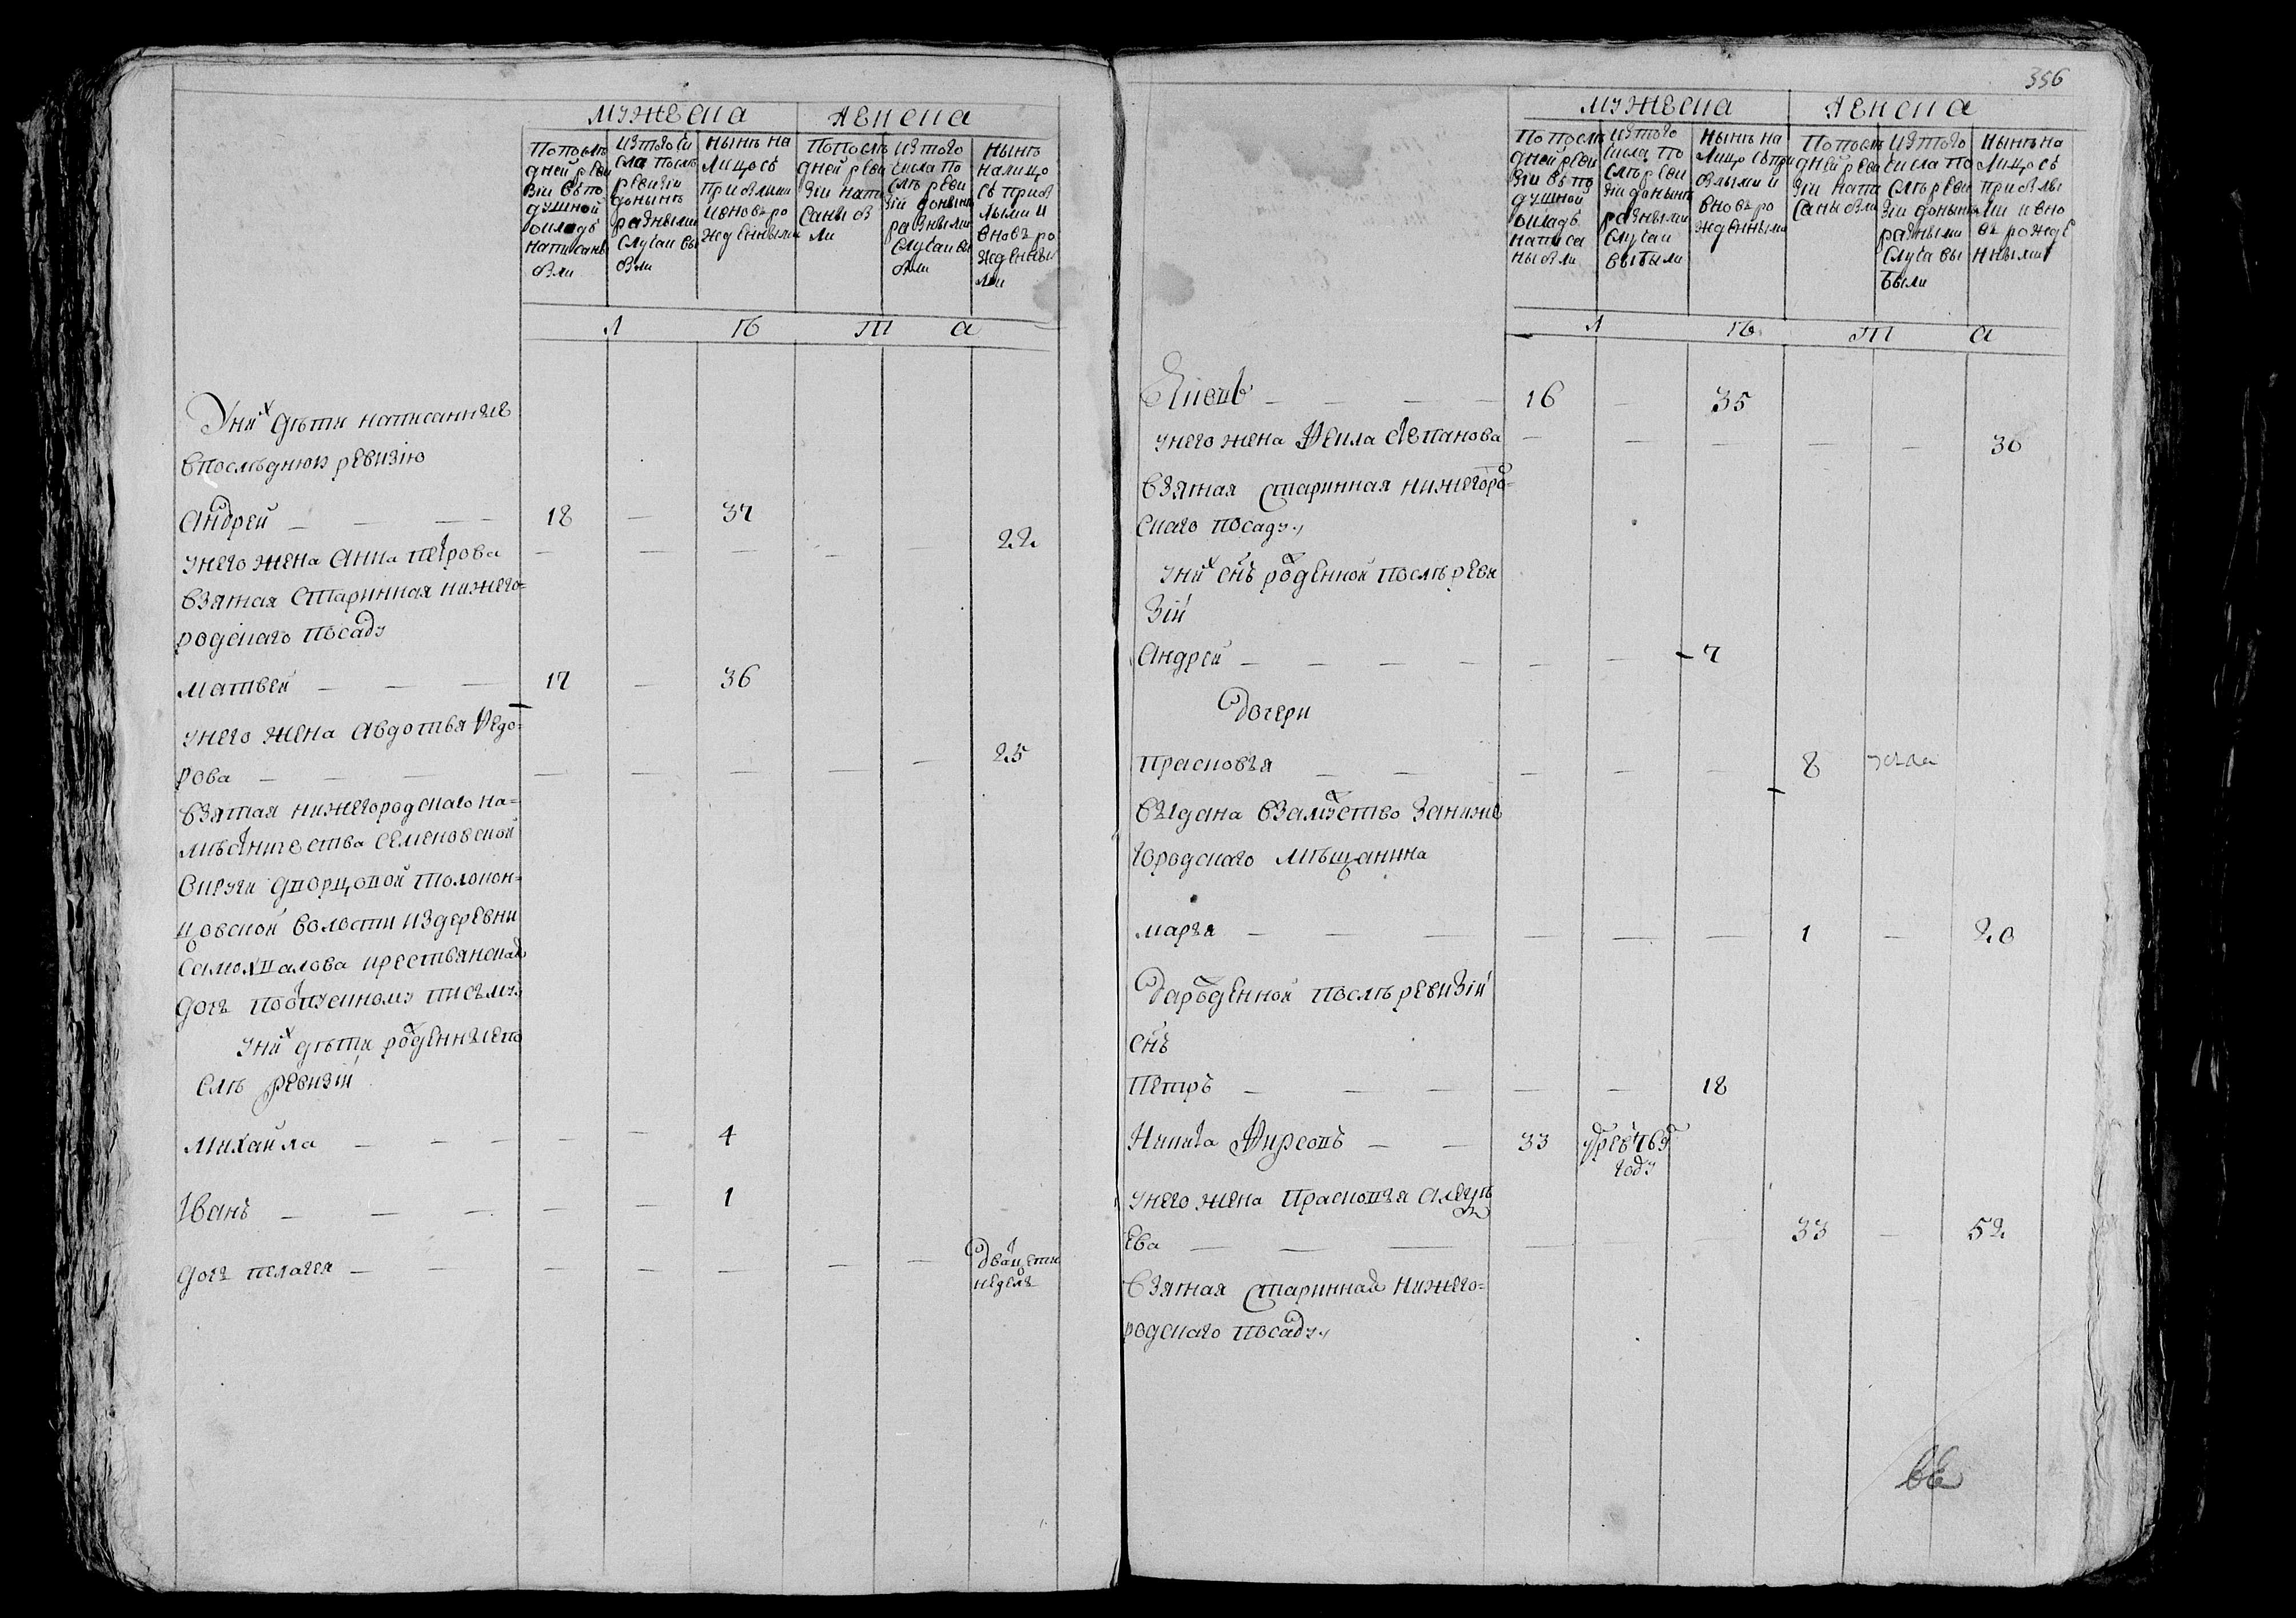 мужеска женска
попослѣ
дней реви
зiи въпо
душной
окладъ
написаны
были
изтого чи
сла послѣ
ревизiи
донынѣ
разными
случаи вы
были
нынѣ на
лицо съ
прибылыми
и вновь ро
жденными
попослѣ
дней реви
зiи напи
саны бы
ли
изтого
числа по
слѣ реви
зiи донынѣ
разными
случаи вы
были
нынѣ
налицо
съ приб
лыми и
вновь ро
жденны
ми
л ѣ т а
Уних дѣти написанные
впоследнюю ревизiю
Андрей — — — 18 — 37
унего жена Анна петрова — — — — 22
взятая старинная нижего-
родскаго посаду
матвей — — — 17 — 36
унего жена авдотья Ѳедо-
рова — — — — — — — — 25
взятая нижегородскаго на-
мѣстничества семеновской
округи дворцовой толокон-
цовской волости издеревни
крестьянская
дочь поотпускному письму
уних дѣти рожденные по
слѣ ревизiи
михаила — — — — — 4
Iванъ — — — — — 1
дочь пелагея — — — — — — — дватцети
недель
356
мужеска женска
попослѣ
дней реви
зiи въпо
душной
окладъ
написа
ны были
изтого
числа по
слѣ реви
зiи донынѣ
разными
случаи
выбыли
нынѣ на
лицо съпри
былыми и
вновь ро
жденными
попослѣ
дней реви
зiи напи
саны были
изтого
числа по
слѣ реви
зiи донынѣ
разными
случа вы
были
нынѣ на
лицо съ
прибылы
ми и вно
вь рожде
нными
л ѣ т а
Яковъ — — — — 16 — 35
унего жена Ѳекла степанова — — — — — 30
взятая старинная нижегоро-
скаго посаду
уних снъ рожденной послѣ реви
зiи
Андрей — — — — — — 7
дочери
прасковья — — — — — 8
выдана взамужство занижне
городскаго мѣщанина
марья — — — — — — 1 — 20
да рожденной послѣ ревизiи
снъ
петръ — — — — — 18
Никита Ѳирсовъ — — 33 умре въ 769
году
унего жена прасковья алексѣ
ева — — — — — — 33 — 52
взятая старинная нижего-
родскаго посаду